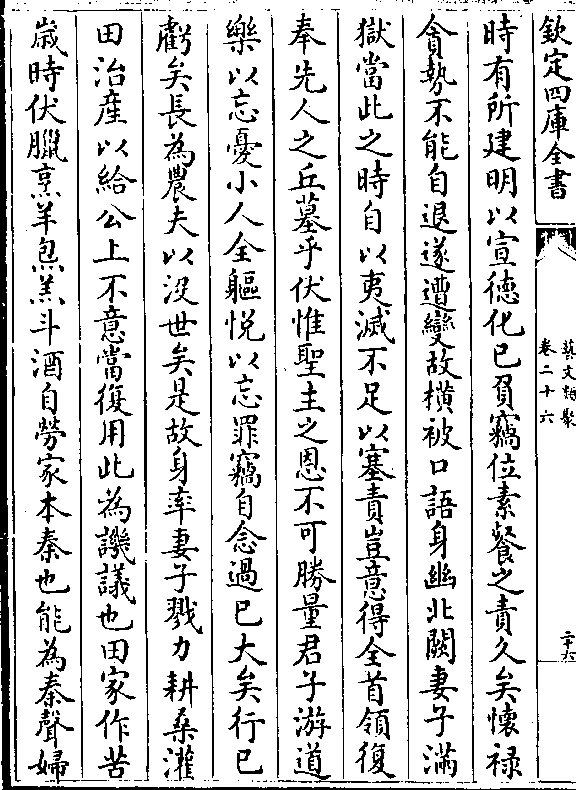 欽定四庫全書
藝文類聚
卷二十六
二十六
時有所建明以宣德化已負竊位素餐之責久矣懷祿
貪勢不能自退遂遭變故横被口語身幽北闕妻子滿
獄當此之時自以夷滅不足以塞責豈意得全首領復
奉先人之丘墓乎伏惟聖主之恩不可勝量君子游道
樂以忘憂小人全軀悅以忘罪竊自念過已大矣行已
虧矣長為農夫以没世矣是故身率妻子戮力耕桑灌
田治產以給公上不意當復用此為譏議也田家作苦
歲時伏臘烹羊炰羔斗酒自勞家本秦也能為秦聲婦